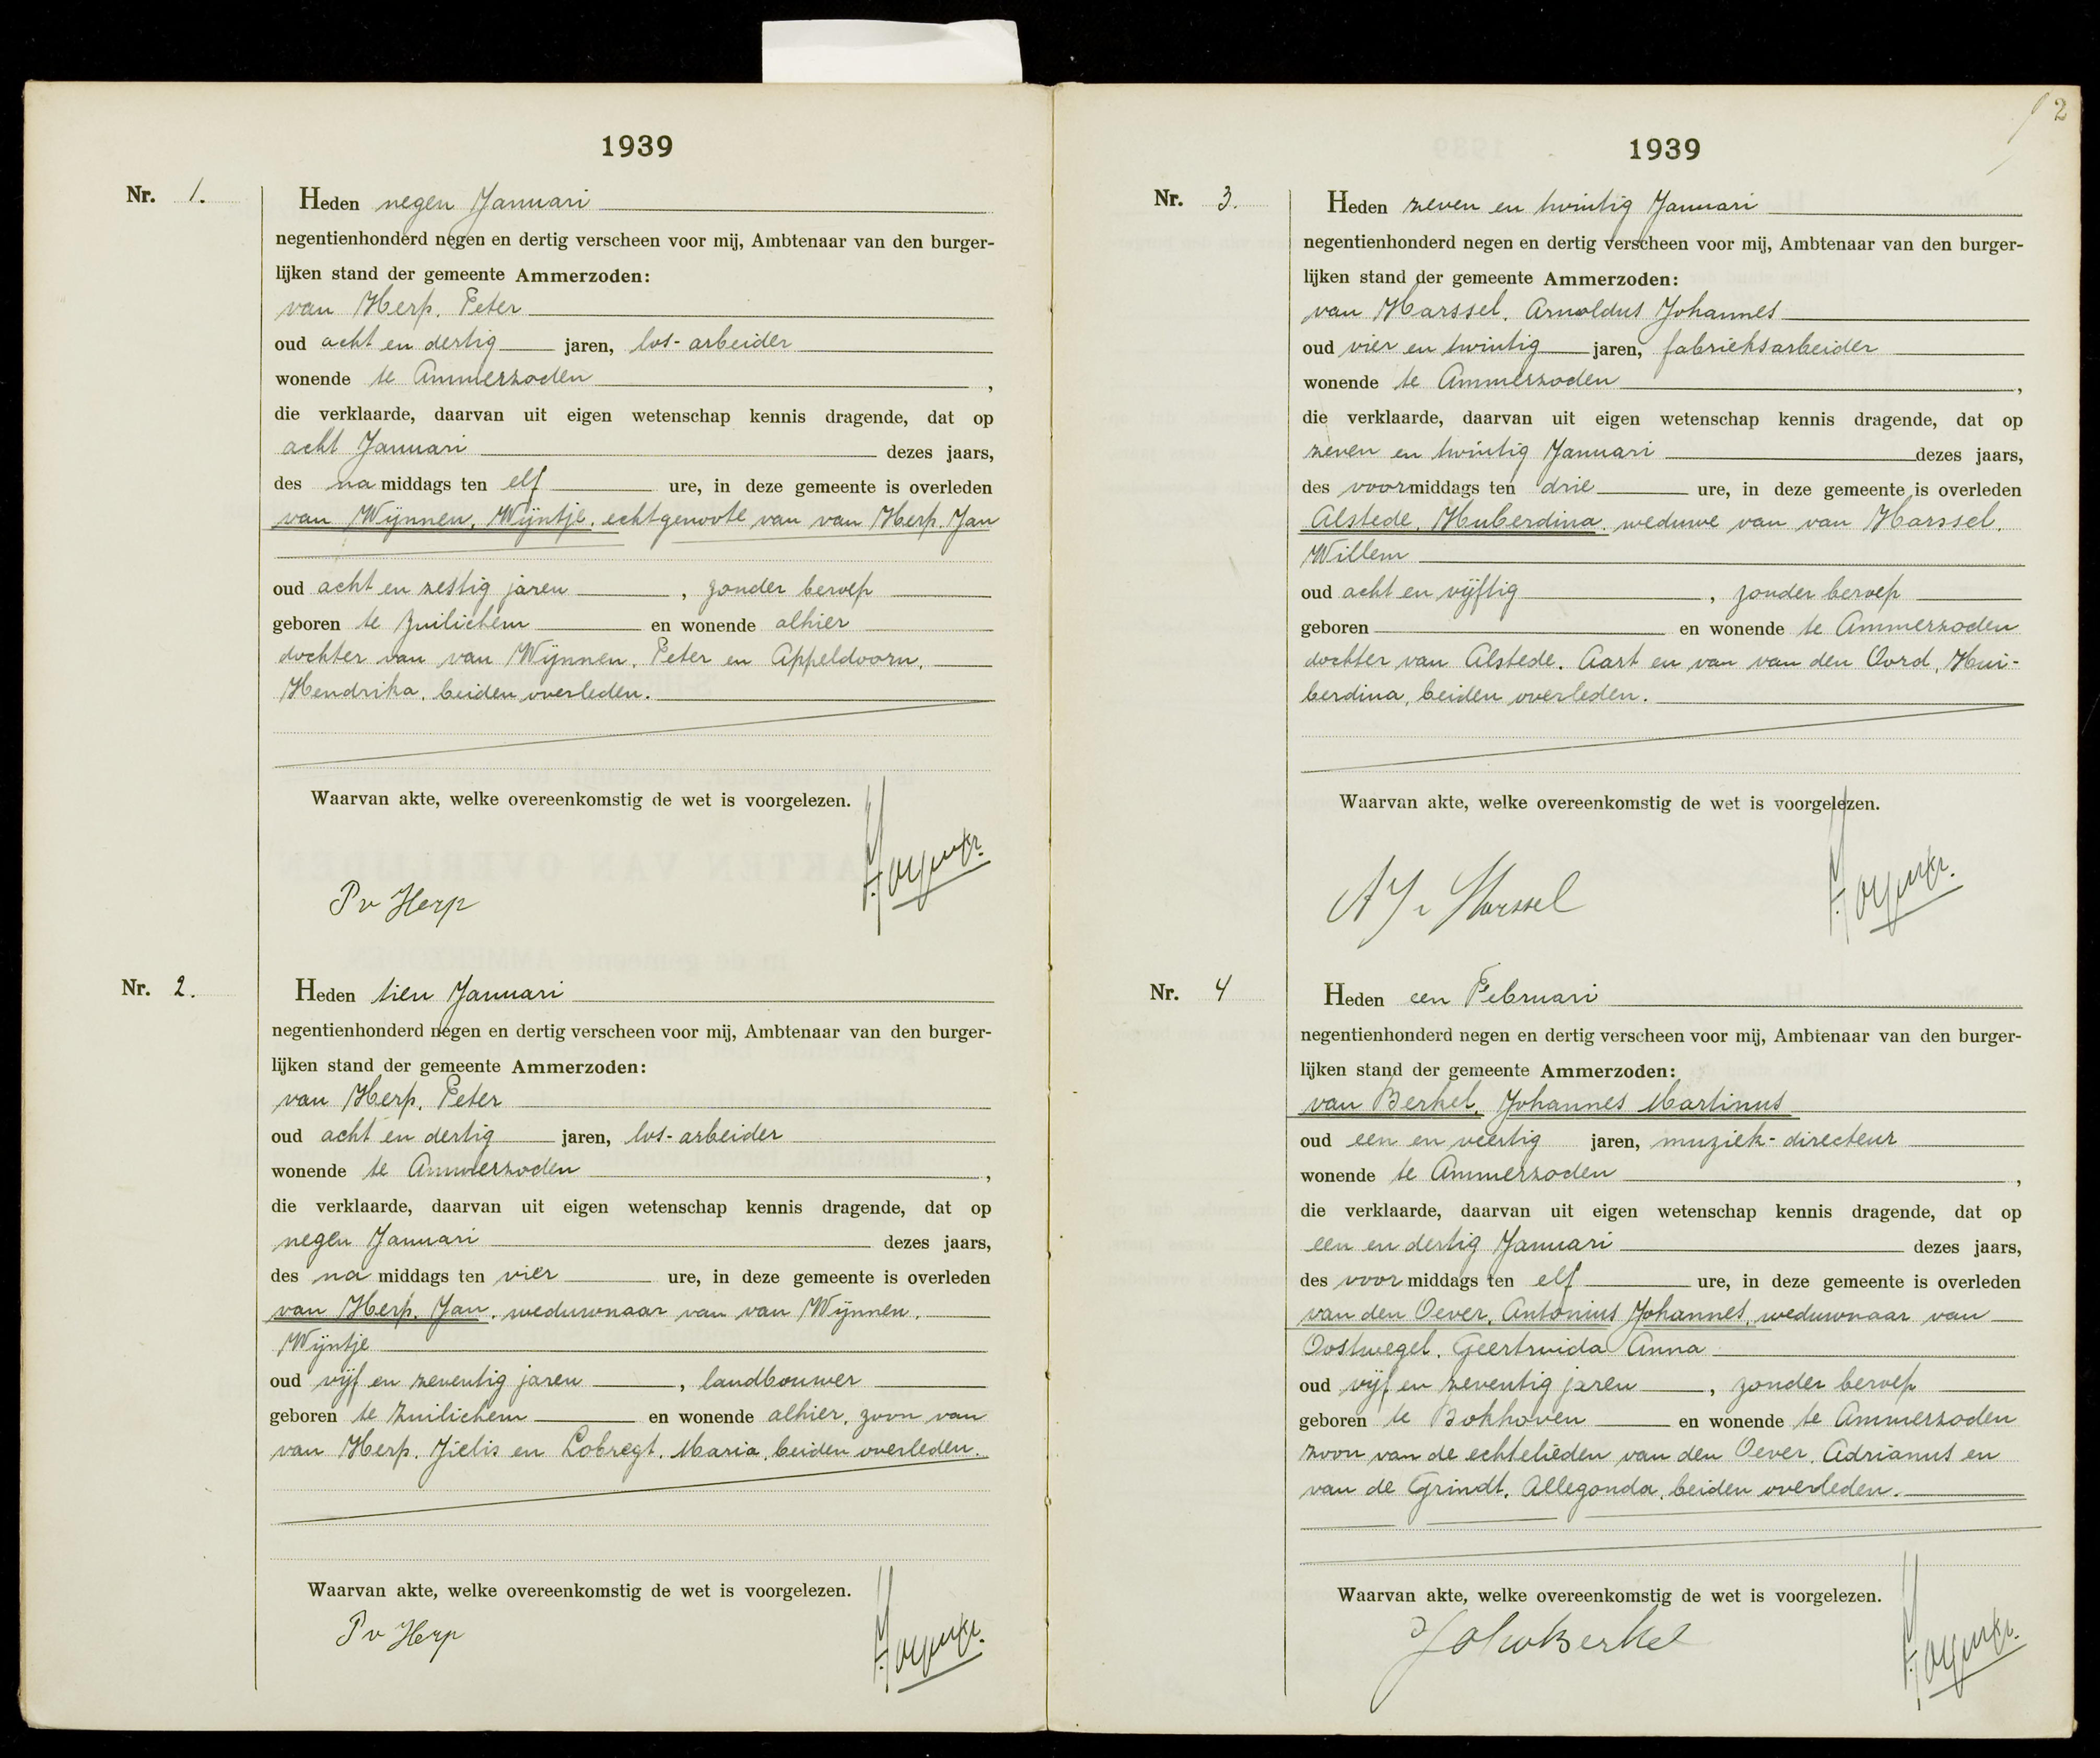 1939
Nr. 1.
Heden negen Januari
negentienhonderd negen en dertig verscheen voor mij, Ambtenaar van den burger-
lijken stand der gemeente Ammerzoden:
van Herp, Peter
oud acht en dertig jaren, los-arbeider
wonende te Ammerzoden,
die verklaarde, daarvan uit eigen wetenschap kennis dragende, dat op
acht Januari dezes jaars,
des na middags ten elf ure, in deze gemeente is overleden
van Wijnnen, Wijntje, echtgenoote van van Herp, Jan
oud acht en zestig jaren, zonder beroep
geboren te Zuilichem en wonende alhier
dochter van van Wijnnen, Peter en Appeldoorn,
Hendrika, beiden overleden.
Waarvan akte, welke overeenkomstig de wet is voorgelezen.
P v Herp
Nr. 2.
Heden tien Januari
negentienhonderd negen en dertig verscheen voor mij, Ambtenaar van den burger-
lijken stand der gemeente Ammerzoden:
van Herp, Peter
oud acht en dertig jaren, los-arbeider
wonende te Ammerzoden,
die verklaarde, daarvan uit eigen wetenschap kennis dragende, dat op
negen Januari dezes jaars,
des na middags ten vier ure, in deze gemeente is overleden
van Herp, Jan, weduwnaar van van Wijnnen,
Wijntje
oud vijf en zeventig jaren, landbouwer
geboren te Zuilichem en wonende alhier, zoon van
van Herp, Jielis en Lobregt, Maria, beiden overleden.
Waarvan akte, welke overeenkomstig de wet is voorgelezen.
P v Herp
2
1939
Nr. 3.
Heden zeven en twintig Januari
negentienhonderd negen en dertig verscheen voor mij, Ambtenaar van den burger-
lijken stand der gemeente Ammerzoden:
van Harssel, Arnoldus Johannes
oud vier en twintig jaren, fabrieksarbeider
wonende te Ammerzoden,
die verklaarde, daarvan uit eigen wetenschap kennis dragende, dat op
zeven en twintig Januari dezes jaars,
des voormiddags ten drie ure, in deze gemeente is overleden
Alstede, Huberdina, weduwe van van Harssel,
Willem
oud acht en vijftig, zonder beroep
geboren en wonende te Ammerzoden
dochter van Alstede, Aart en van van den Oord, Hui-
berdina, beiden overleden.
Waarvan akte, welke overeenkomstig de wet is voorgelezen.
A J v Harssel
Nr. 4
Heden een Februari
negentienhonderd negen en dertig verscheen voor mij, Ambtenaar van den burger-
lijken stand der gemeente Ammerzoden:
van Berkel, Johannes Martinus
oud een en veertig jaren, muziek-directeur
wonende te Ammerzoden,
die verklaarde, daarvan uit eigen wetenschap kennis dragende, dat op
een en dertig Januari dezes jaars,
des voor middags ten elf ure, in deze gemeente is overleden
van den Oever, Antonius Johannes, weduwnaar van
Oostwegel, Geertruida Anna
oud vijf en zeventig jaren, zonder beroep
geboren te Bokhoven en wonende te Ammerzoden
zoon van de echtelieden van den Oever, Adrianus en
van de Grindt, Allegonda, beiden overleden.
Waarvan akte, welke overeenkomstig de wet is voorgelezen.